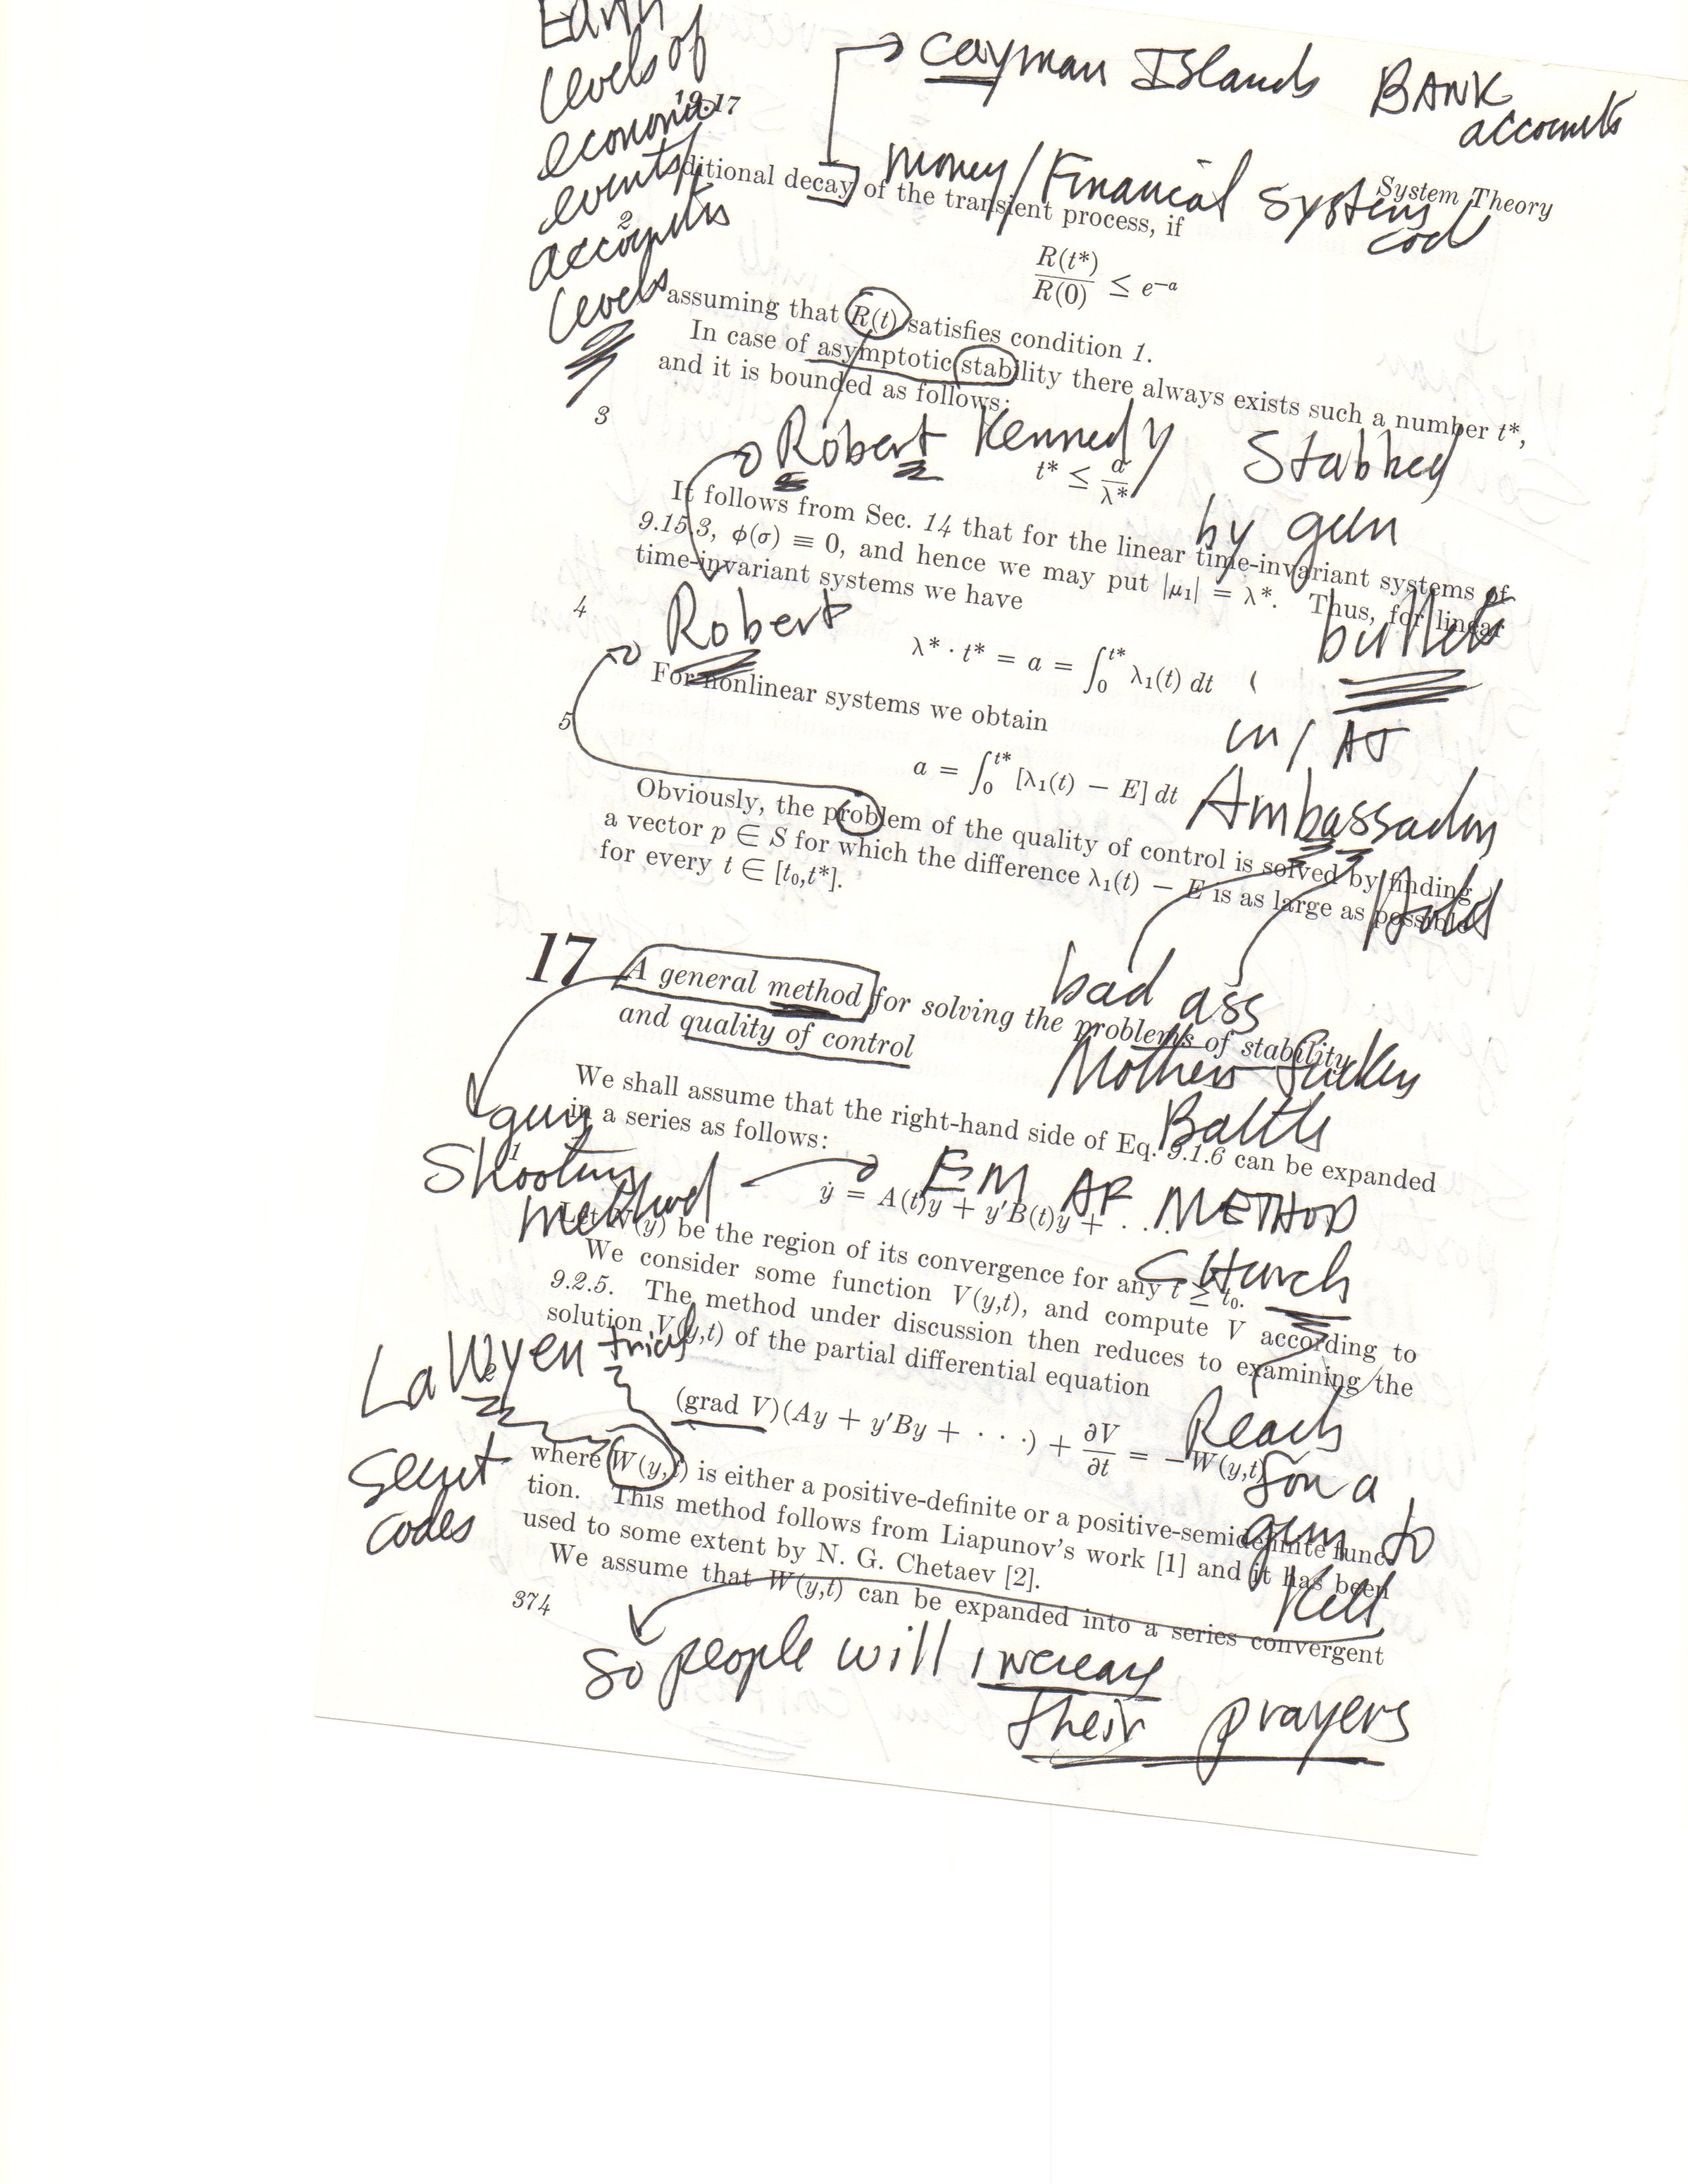 Earth
levels of
economic
events/
accounts
levels
Cayman Islands BANK
accounts
Money/Financial Systems
cod
19.17
System Theory
ditional decay of the transient process, if
2
R(t*)/R(0) ≤ e^{-a}
assuming that R(t) satisfies condition 1.
In case of asymptotic stability there always exists such a number t*,
and it is bounded as follows:
3
t* ≤ a/λ*
Robert Kennedy Stabbed
by gun
bullets
in/AT
Ambassador
Hotel
It follows from Sec. 14 that for the linear time-invariant systems of
9.15.3, ϕ(σ) ≡ 0, and hence we may put |μ₁| = λ*. Thus, for linear
time-invariant systems we have
4
Robert
λ* · t* = a = ∫₀^{t*} λ₁(t) dt
For nonlinear systems we obtain
5
a = ∫₀^{t*} [λ₁(t) − E] dt
Obviously, the problem of the quality of control is solved by finding
a vector p ∈ S for which the difference λ₁(t) − E is as large as possible
for every t ∈ [t₀,t*].
bad ass
Mother Fucker
Battle
17 A general method for solving the problems of stability
and quality of control
We shall assume that the right-hand side of Eq. 9.1.6 can be expanded
in a series as follows:
gun
Shooting
method
EM AF METHOD
1
ẏ = A(t)y + y′B(t)y + . . .
Let N(y) be the region of its convergence for any t ≥ t₀.
Church
We consider some function V(y,t), and compute V according to
9.2.5. The method under discussion then reduces to examining the
solution V(y,t) of the partial differential equation
Lawyer trial
secret
codes
2
(grad V)(Ay + y′By + · · ·) + ∂V/∂t = −W(y,t)
Reach
for a
gun to
Kill
where W(y,t) is either a positive-definite or a positive-semidefinite func-
tion. This method follows from Liapunov's work [1] and it has been
used to some extent by N. G. Chetaev [2].
We assume that W(y,t) can be expanded into a series convergent
374
So people will increase
their prayers